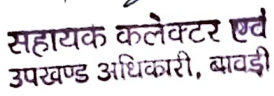 सहायक कलेक्टर एवं
उपखण्ड अधिकारी, बावड़ी